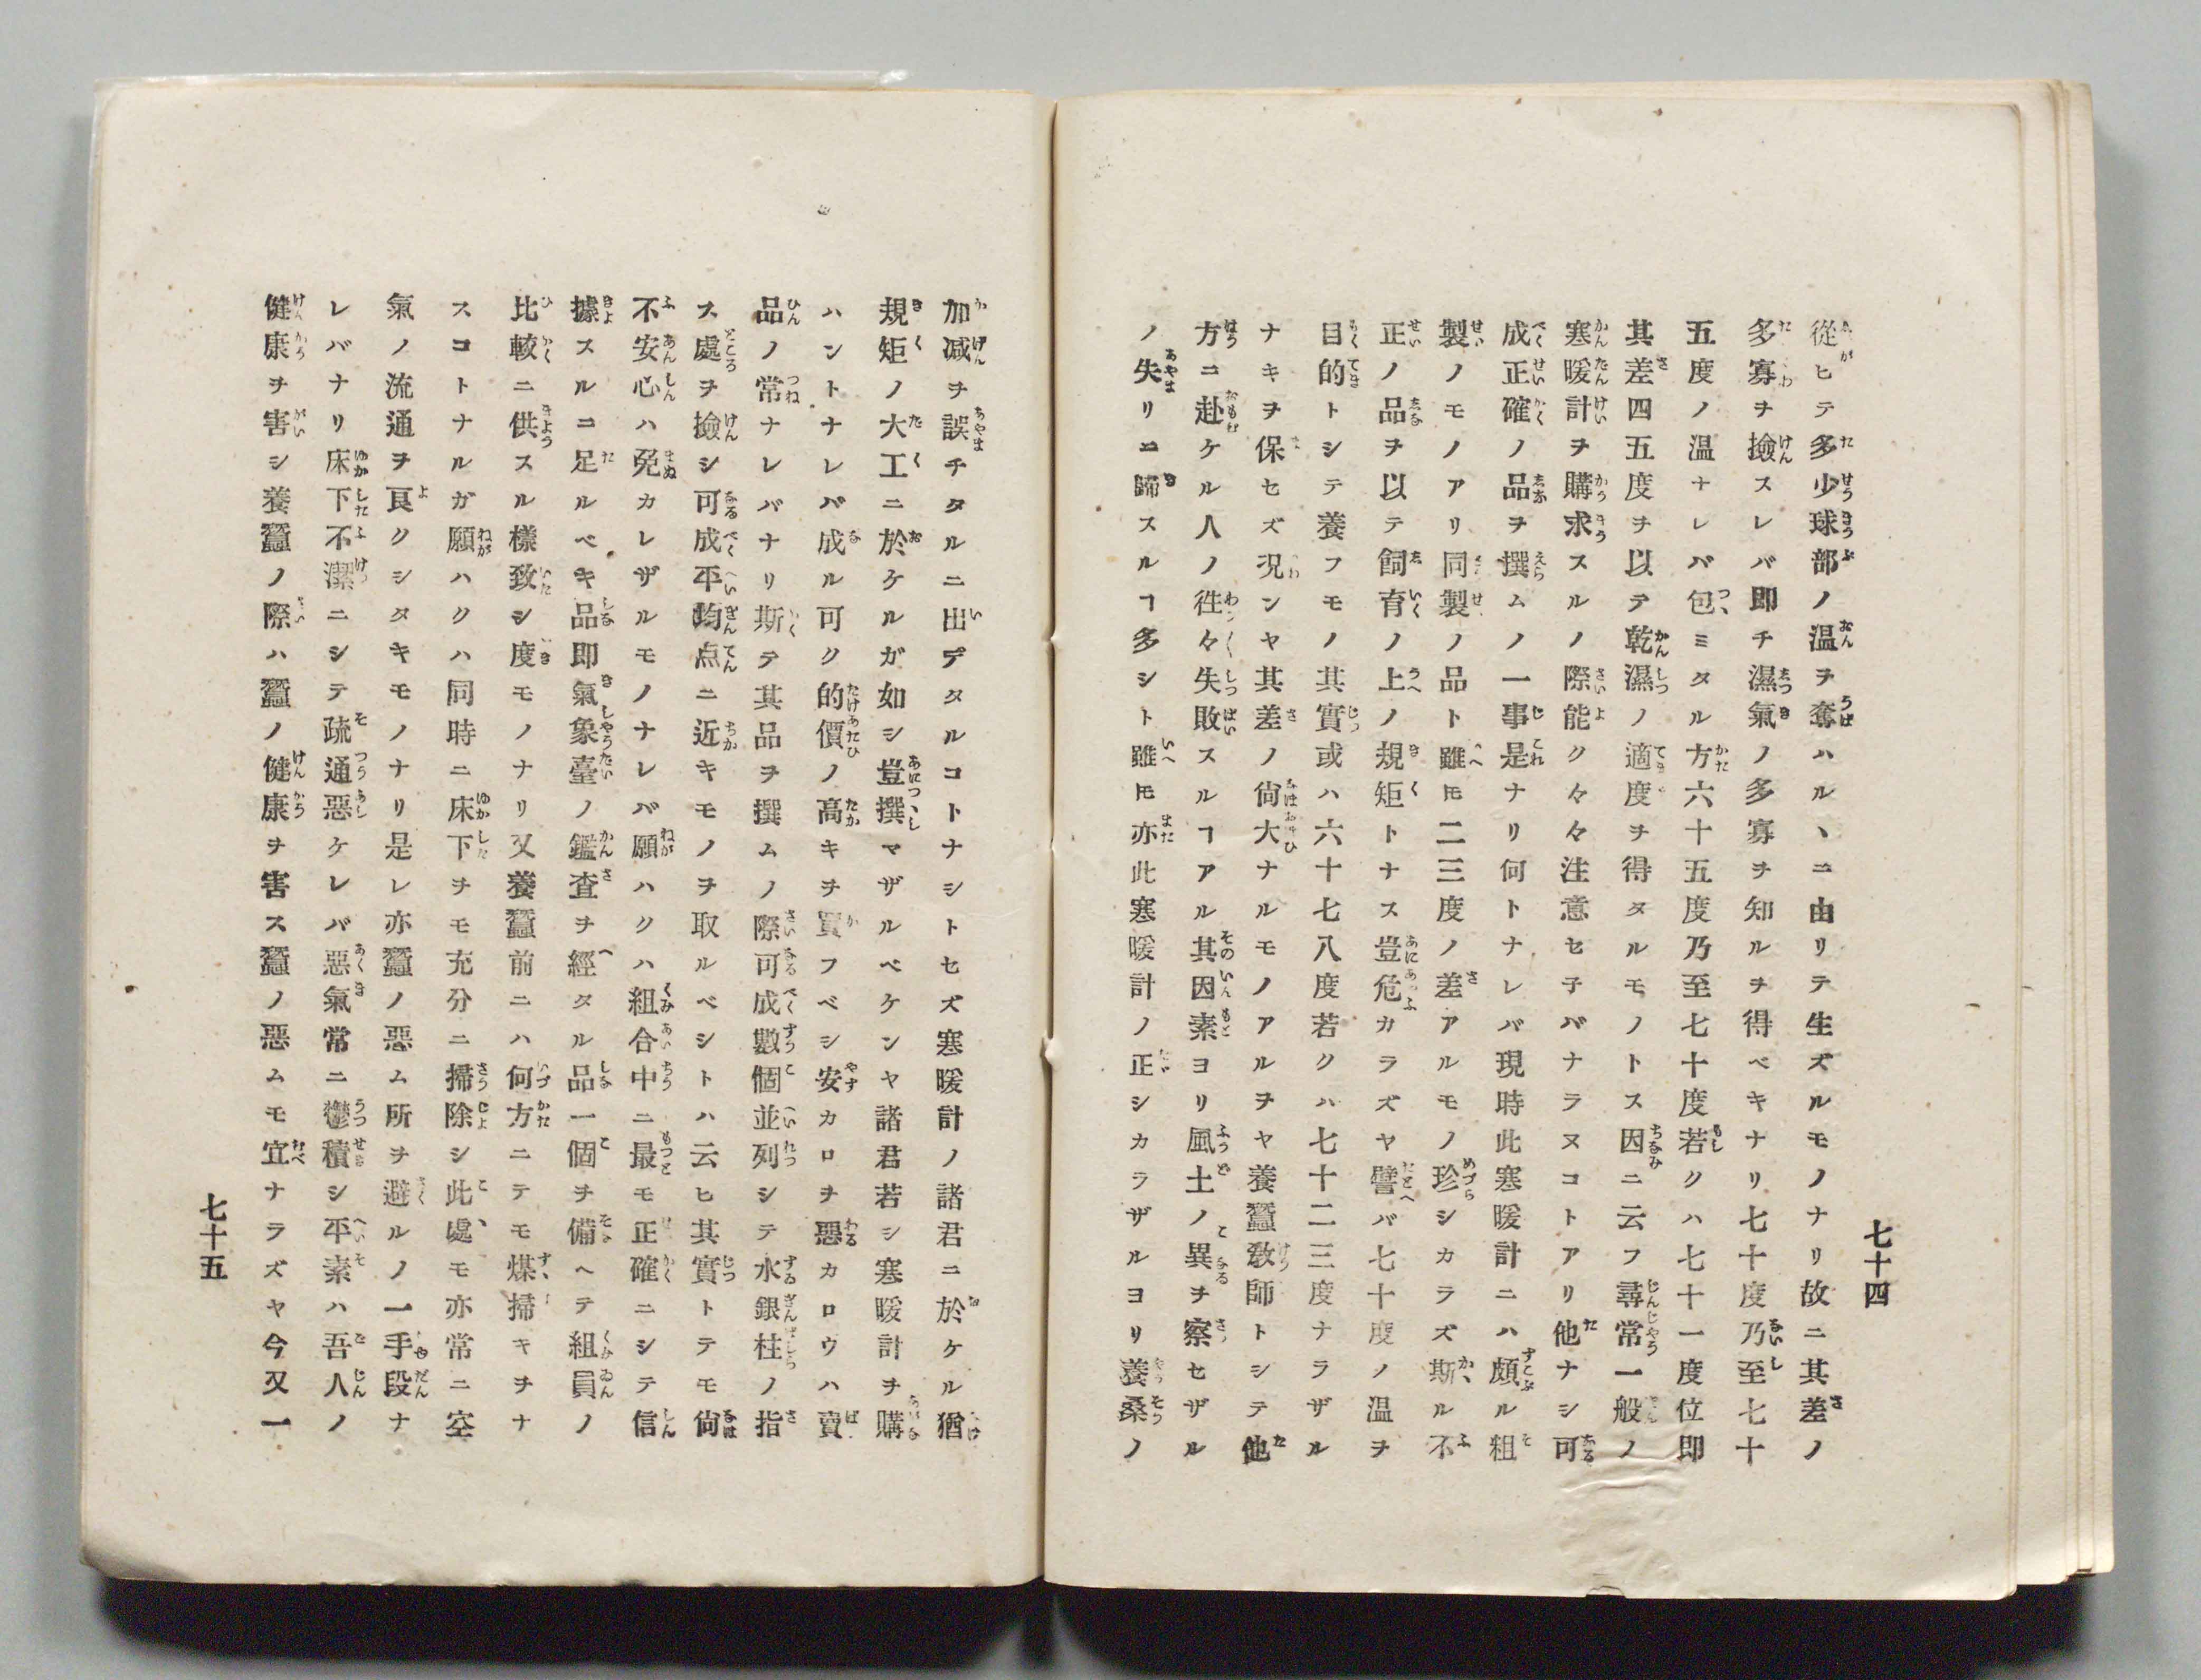 七十四
從ヒテ多少球部ノ温ヲ奪ハルヽニ由リテ生ズルモノナリ故ニ其差ノ
多寡ヲ撿スレバ即チ濕氣ノ多寡ヲ知ルヲ得ベキナリ七十度乃至七十
五度ノ温ナレバ包ミタル方六十五度乃至七十度若クハ七十一度位即
其差四五度ヲ以テ乾濕ノ適度ヲ得タルモノトス因ニ云フ尋常一般ノ
寒暖計ヲ購求スルノ際能ク々々注意セ子バナラヌコトアリ他ナシ可
成正確ノ品ヲ撰ムノ一事是ナリ何トナレバ現時此寒暖計ニハ頗ル粗
製ノモノアリ同製ノ品ト雖𪜈二三度ノ差アルモノ珍シカラズ斯ル不
正ノ品ヲ以テ飼育ノ上ノ規矩トナス豈危カラズヤ譬バ七十度ノ温ヲ
目的トシテ養フモノ其實或ハ六十七八度若クハ七十二三度ナラザル
ナキヲ保セズ況ンヤ其差ノ尙大ナルモノアルヲヤ養蠶敎師トシテ他
方ニ赴ケル人ノ徃々失敗スルヿアル其因素ヨリ風土ノ異ヲ察セザル
ノ失リニ歸スルヿ多シト雖𪜈亦此寒暖計ノ正シカラザルヨリ養桑ノ
加减ヲ誤チタルニ出デタルコトナシトセズ寒暖計ノ諸君ニ於ケル猶
規矩ノ大工ニ於ケルガ如シ豈撰マザルベケンヤ諸君若シ寒暖計ヲ購
ハントナレバ成ル可ク的價ノ高キヲ買フベシ安カロヲ惡カロウハ賣
品ノ常ナレバナリ斯テ其品ヲ撰ムノ際可成數個並列シテ水銀柱ノ指
ス處ヲ撿シ可成平均点ニ近キモノヲ取ルベシトハ云ヒ其實トテモ尙
不安心ハ免カレザルモノナレバ願ハクハ組合中ニ最モ正確ニシテ信
據スルニ足ルベキ品即氣象臺ノ鑑査ヲ經タル品一個ヲ備ヘテ組員ノ
比較ニ供スル樣致シ度モノナリ又養蠶前ニハ何方ニテモ煤掃キヲナ
スコトナルガ願ハクハ同時ニ床下ヲモ充分ニ掃除シ此處モ亦常ニ空
氣ノ流通ヲ良クシタキモノナリ是レ亦蠶ノ惡ム所ヲ避ルノ一手段ナ
レバナリ床下不潔ニシテ疏通惡ケレバ惡氣常ニ鬱積シ平素ハ吾人ノ
健康ヲ害シ養蠶ノ際ハ蠶ノ健康ヲ害ス蠶ノ惡ムモ宜ナラズヤ今又一
七十五